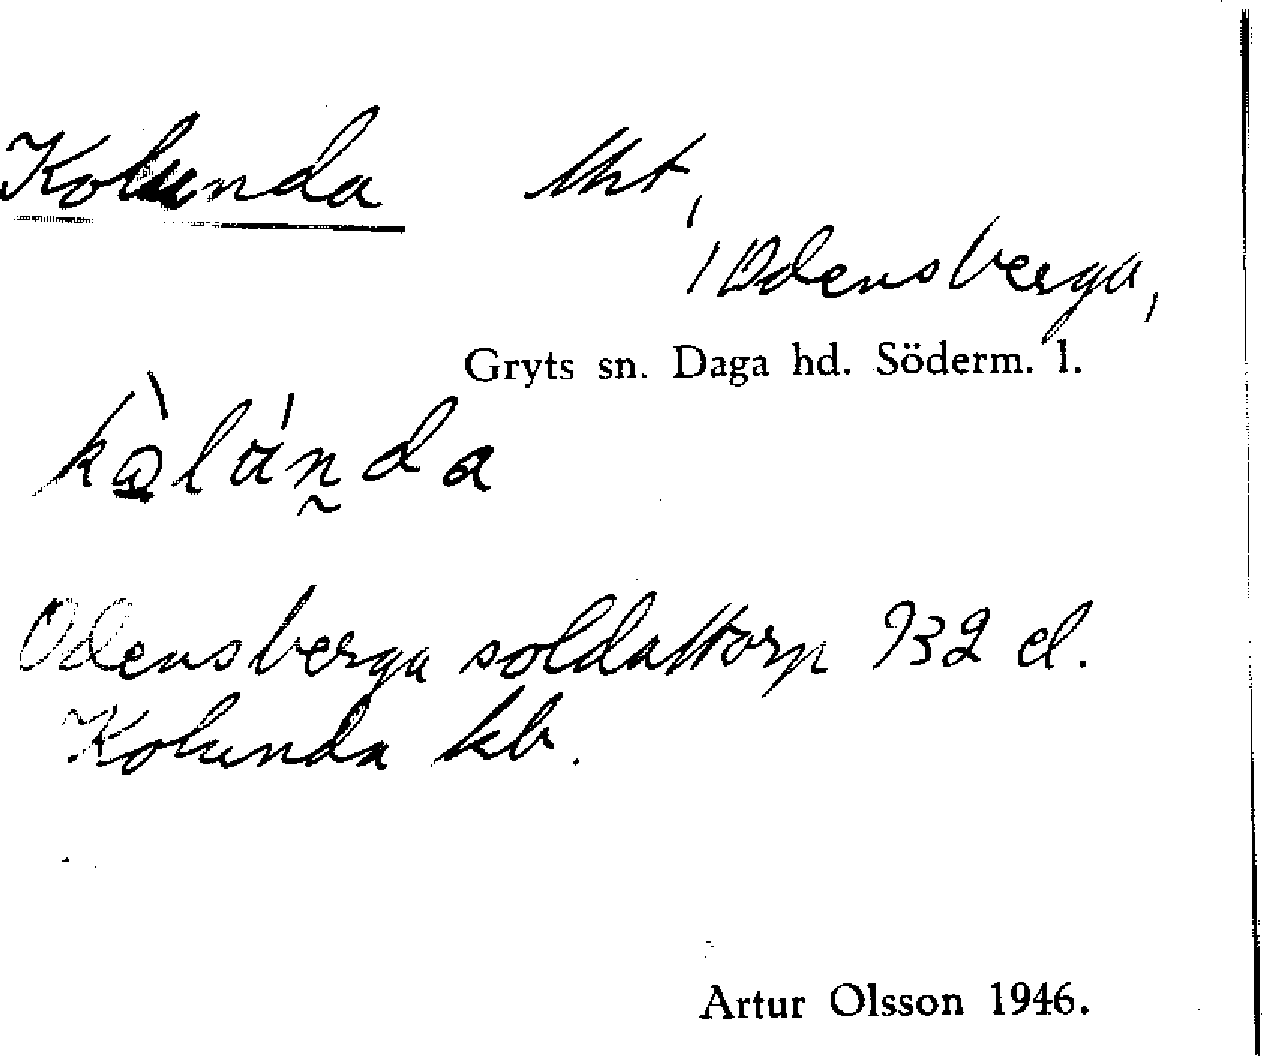 Kolunda lht,
/ Odensberga,
Gryts sn. Daga hd. Söderm. l.
kòlánda
Odensberga soldattorp 932 el.
Kolunda kb.
Artur Olsson 1946.